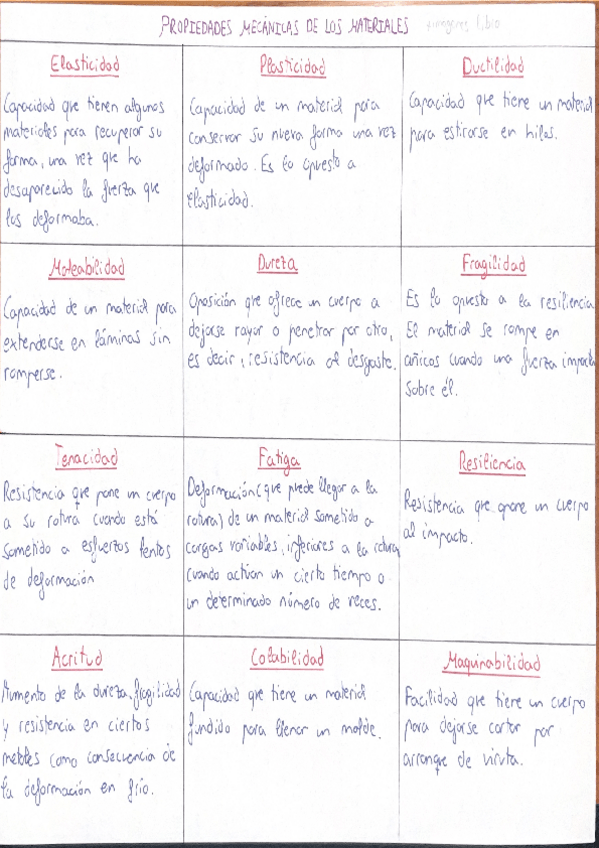 PROPIEDADES MECÁNICAS DE LOS MATERIALES
Elasticidad
Capacidad que tienen algunos
materiales para recuperar su
forma, una vez que ha
desaparecido la fuerza que
los deformaba.
Plasticidad
Capacidad de un material para
conservar su nueva forma una vez
deformado. Es lo opuesto a
elasticidad.
Ductilidad
Capacidad que tiene un material
para estirarse en hilos.
Maleabilidad
Capacidad de un material para
extenderse en láminas sin
romperse.
Dureza
Oposición que ofrece un cuerpo a
dejarse rayar o penetrar por otro,
es decir, resistencia al desgaste.
Fragilidad
Es lo opuesto a la resiliencia.
El material se rompe en
añicos cuando una fuerza impacta
sobre él.
Tenacidad
Resistencia que pone un cuerpo
a su rotura cuando está
sometido a esfuerzos lentos
de deformación
Fatiga
Deformación (que puede llegar a la
rotura) de un material sometido a
cargas variables, inferiores a la rotura,
cuando actúan un cierto tiempo o
un determinado número de veces.
Resiliencia
Resistencia que opone un cuerpo
al impacto.
Acritud
Aumento de la dureza, fragilidad
y resistencia en ciertos
metales como consecuencia de
la deformación en frío.
Colabilidad
Capacidad que tiene un material
fundido para llenar un molde.
Maquinabilidad
Facilidad que tiene un cuerpo
para dejarse cortar por
arranque de viruta.